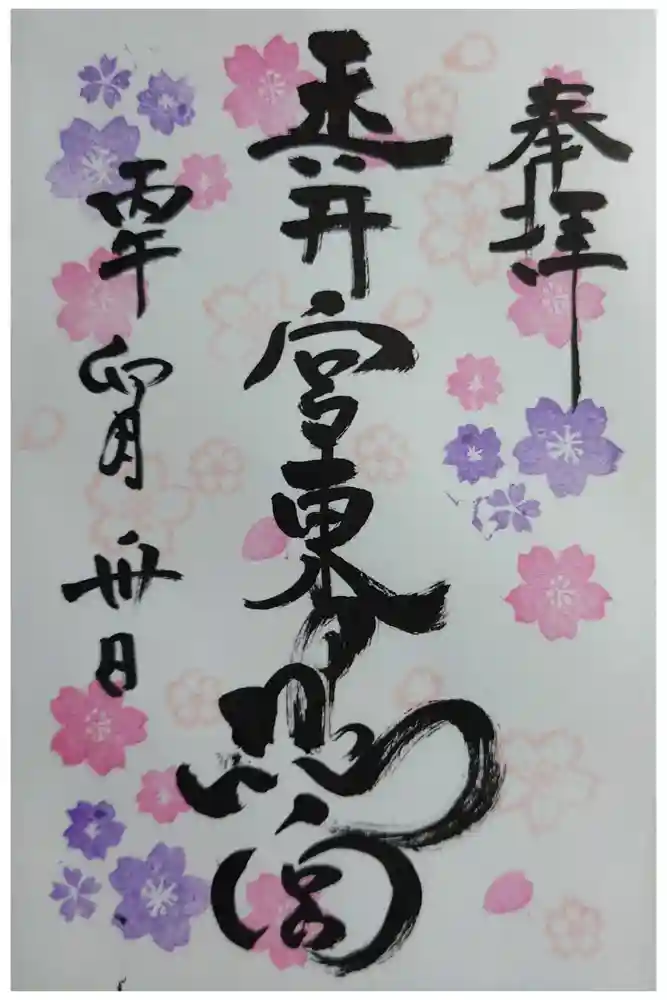 奉拝
玉井宮東照宮
丙午 卯月 卅日